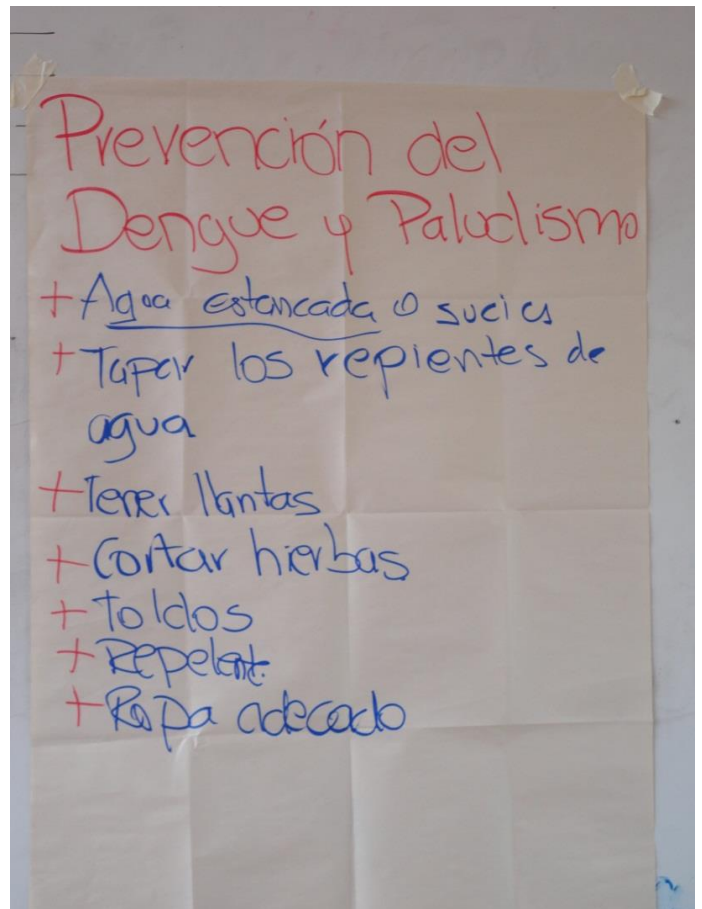 Prevención del
Dengue y Paludismo
+ Agua estancada o sucia
+ Tapar los repientes de
agua
+ Tener llantas
+ Cortar hierbas
+ Toldos
+ Repelente.
+ Ropa adecado